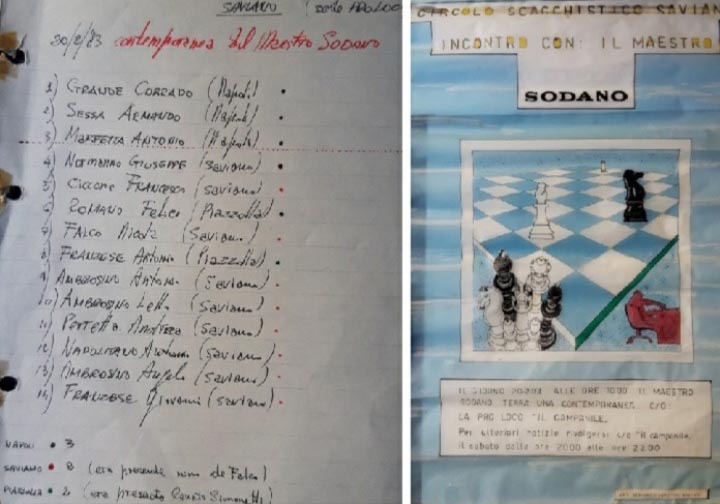 SAVIANO (sede PROLOCO
20/2/83 contemporanea del Maestro SODANO
1) GRANDE CORRADO (Napoli)
2) SESSA ARMANDO (Napoli)
3) ANTONIO (Napoli)
4) NORMANNO GIUSEPPE (Saviano)
5) CICCONE FRANCESCO (Saviano)
6) ROMANO FELICE (Piazzolla)
7) FALCO NICOLA (Saviano)
8) FRANZESE ANTONIO (Piazzolla)
9) AMBROSINO ANTONIO (Saviano)
10) AMBROSINO (Saviano)
11) (Saviano)
12) NAPOLITANO (Saviano)
13) AMBROSINO Angelo (Saviano)
14) FRANZESE Giovanni (Saviano)
NAPOLI • 3
SAVIANO • 8 (era presente de Falco)
PIAZZOLLA • 2 (era presente Simonetti)
CIRCOLO SCACCHISTICO SAVIAN
INCONTRO CON: IL MAESTRO
SODANO
IL GIORNO ALLE ORE IL MAESTRO
SODANO TERRA' UNA CONTEMPORANEA C/O:
LA PRO LOCO "IL CAMPANILE.
Per ulteriori notizie rivolgersi c/o "il campanile,
il sabato dalle ore 20.00 alle ore 22.00